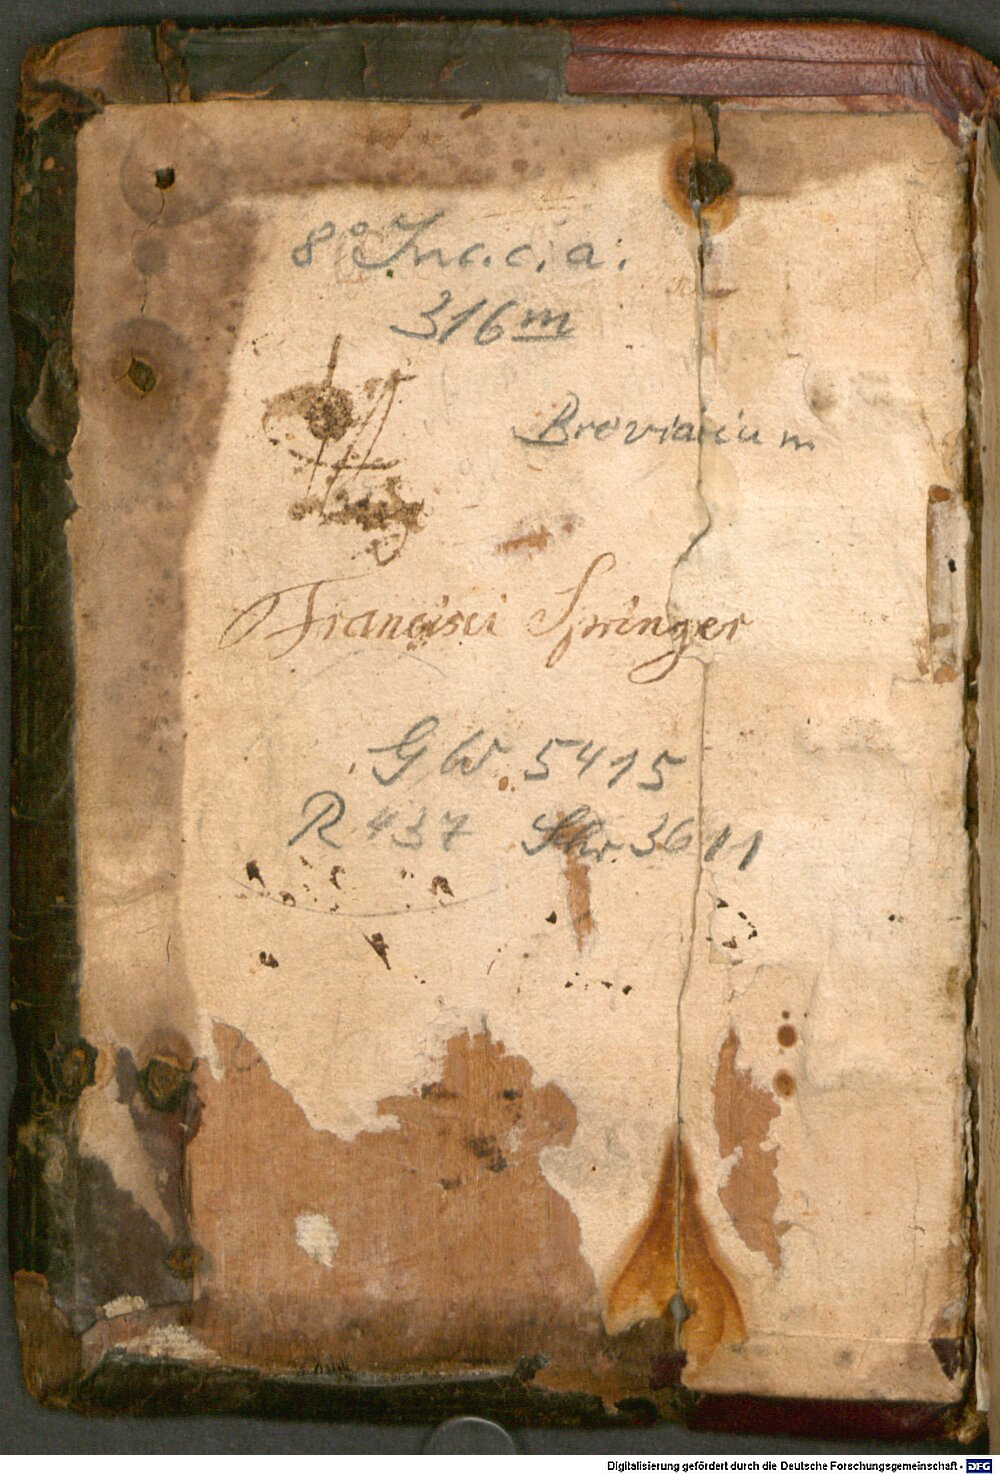 8° Inc.c.a.
316 m
Breviarium
Francisci Springer
GW 5415
R 437 Shr. 3611
Digitalisierung gefördert durch die Deutsche Forschungsgemeinschaft - DFG